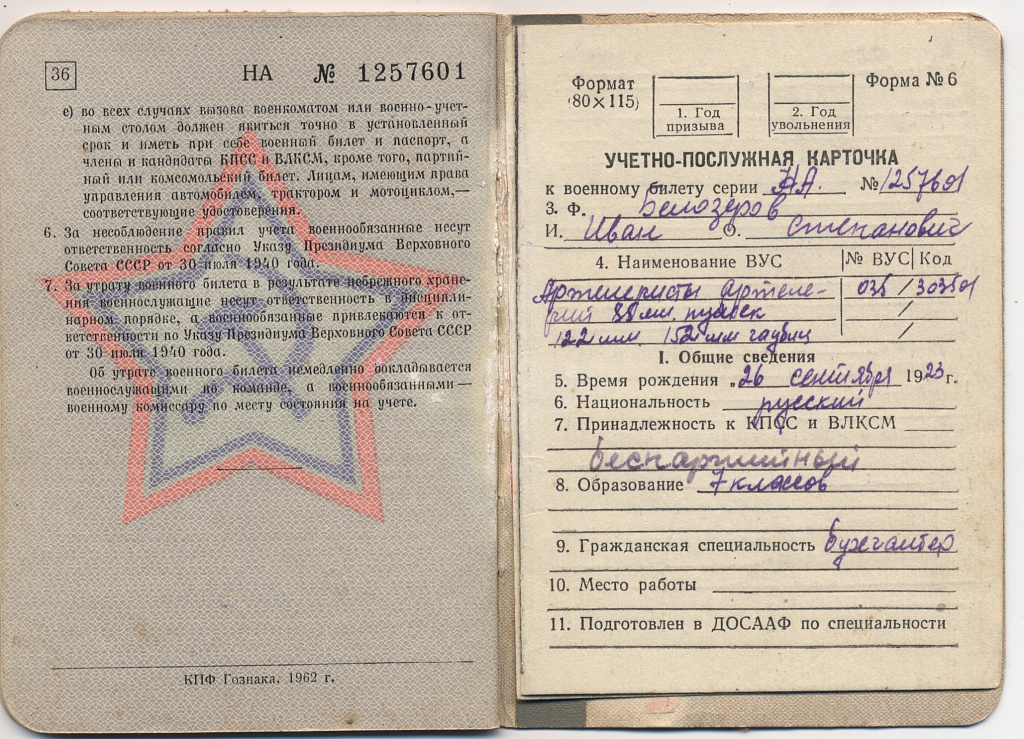 36
НА № 1257601
е) во всех случаях вызова военкоматом или военно-учет-
ным столом должен явиться точно в установленный
срок и иметь при себе военный билет и паспорт, а
члены и кандидаты КПСС и ВЛКСМ, кроме того, партий-
ный или комсомольский билет. Лицам, имеющим права
управления автомобилем, трактором и мотоциклом,—
соответствующие удостоверения.
6. За несоблюдение правил учета военнообязанные несут
ответственность согласно Указу Президиума Верховного
Совета СССР от 30 июля 1940 года.
7. За утрату военного билета в результате небрежного хране-
ния военнослужащие несут ответственность в дисципли-
нарном порядке, а военнообязанные привлекаются к от-
ветственности по Указу Президиума Верховного Совета СССР
от 30 июля 1940 года.
Об утрате военного билета немедленно докладывается
военнослужащими по команде, а военнообязанными —
военному комиссару по месту состояния на учете.
КПФ Гознака. 1962 г.
Формат
(80×115)
1. Год
призыва
2. Год
увольнения
Форма № 6
УЧЕТНО-ПОСЛУЖНАЯ КАРТОЧКА
к военному билету серии НА. № 1257601
3. Ф. Белозеров
И. Иван О. Степанович
4. Наименование ВУС № ВУС Код
Артелеристы артеле- 035 / 303501
рий 85 мм. пушек /
122 мм. 152 мм гаубиц /
I. Общие сведения
5. Время рождения „26 сентября 1923 г.
6. Национальность русский
7. Принадлежность к КПСС и ВЛКСМ
беспартийный
8. Образование 7 классов
9. Гражданская специальность бухгалтер
10. Место работы
11. Подготовлен в ДОСААФ по специальности